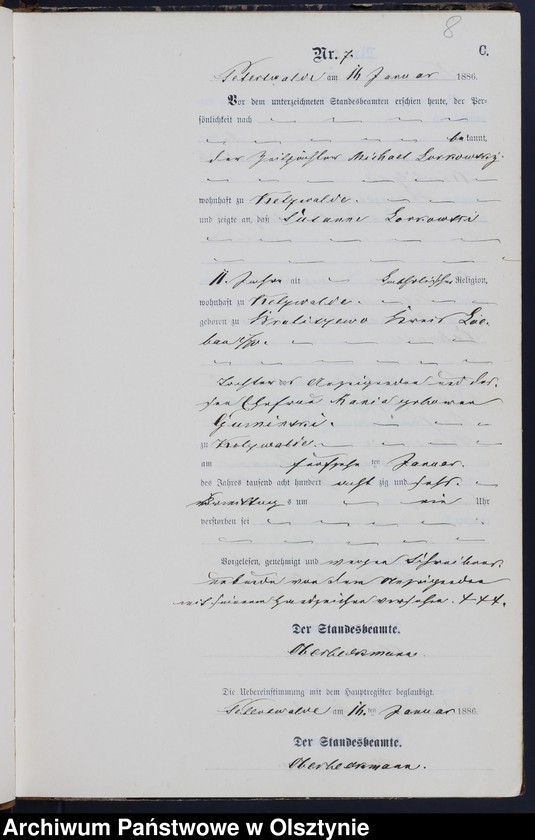 8
Nr. 7. C.
Peterswalde am 16 Januar 1886.
Vor dem unterzeichneten Standesbeamten erschien heute, der Per-
sönlichkeit nach
bekannt,
der Michael Lorkowski
wohnhaft zu
und zeigte an, daß Susanne Lorkowski
Jahre alt katholischer Religion,
wohnhaft zu
geboren zu Kreis Löe-
bau
Tochter des Anzeigenden und des-
sen Ehefrau geborenen
zu
am fünfzehnten Januar
des Jahres tausend acht hundert achtzig und sechs
Vormittags um ein Uhr
verstorben sei
Vorgelesen, genehmigt und wegen Schreibens-
unkunde von dem Anzeigenden
mit seinem Handzeichen versehen. + + +.
Der Standesbeamte.
Oberbeckmann.
Die Uebereinstimmung mit dem Hauptregister beglaubigt.
Peterswalde am 16.ten Januar 1886.
Der Standesbeamte.
Oberbeckmann.
Archiwum Państwowe w Olsztynie